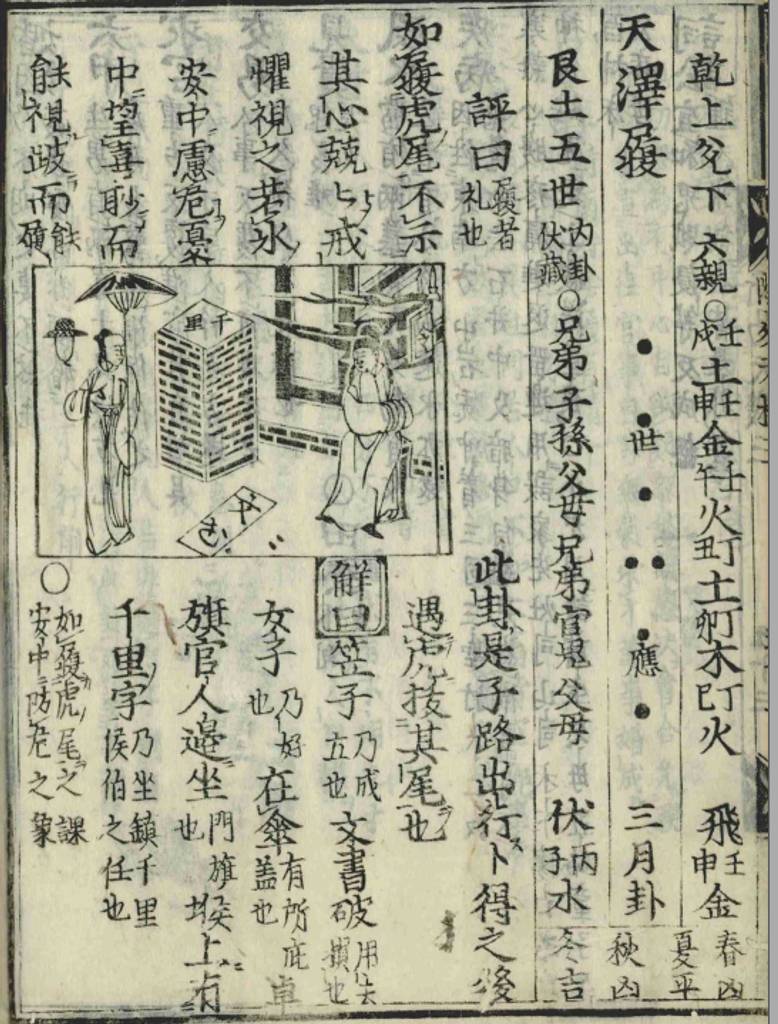 乾上兊下 六親○壬戌土壬申金壬午火丁丑土丁卯木丁巳火 飛壬申金 春凶夏平
天澤履 世 應 三月卦 秋凶
艮土五世 内卦伏藏○兄弟子孫父母兄弟官鬼父母 伏丙子水 冬吉
評曰 履者礼也 此卦是子路出行卜得之後
如履虎尾不示 遇虎拔其尾也
其心兢〻戒 觧曰笠子 乃成立也 文書破 用失損也
懼視之若氷 女子 乃好也 在傘 有所庇盖也 卓
安中慮危憂 旗官人邉坐 門旗也 堠上有
中望喜眇而 千里字 乃坐鎮千里侯伯之任也
能視跛而能履 ○如履虎尾之課 安中防危之象
千里
文书